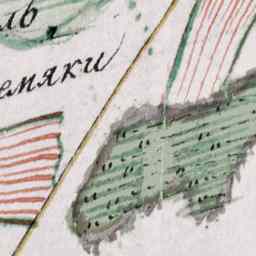 ль
емяки